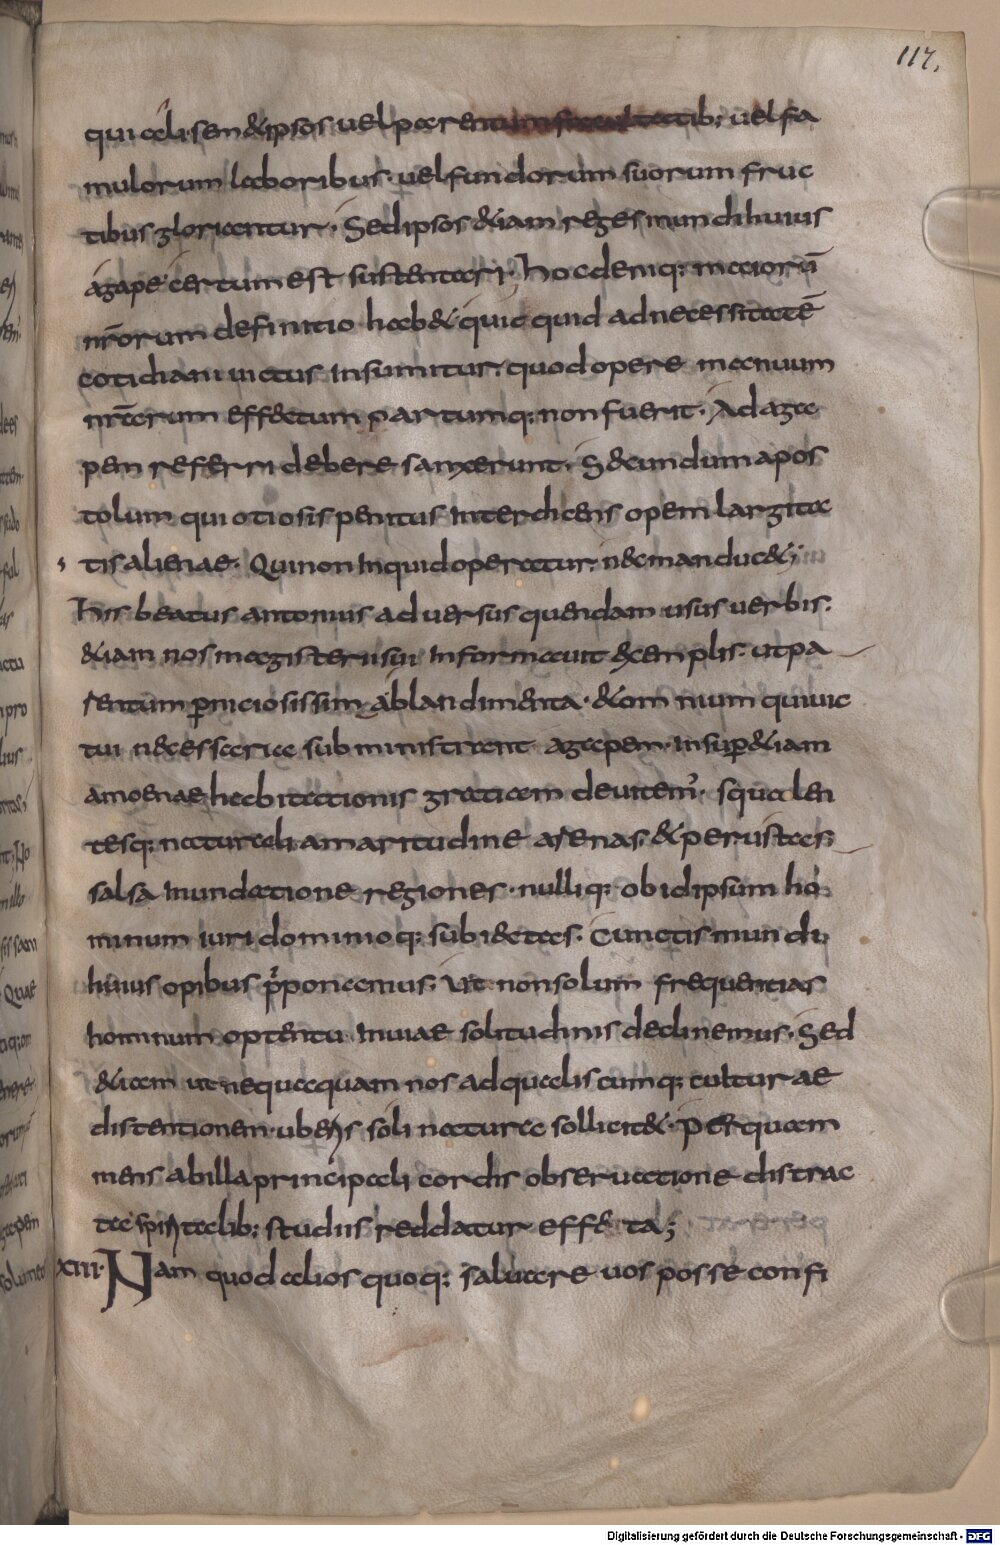 117.
qui ali sem & ipsos uel parentum facultatib; uel fa
mulorum laboribus uel fundorum suorum fruc
tibus glorientur. Sed ipsos &iam reges mundi huius
agape certum est sustentari. hoc deniq; maiorū
nr̄orum definitio hab& quic quid ad necessitatē
cotidiani uictus insumitur. quod opere manuum
nr̄arum effectum partumq; non fuerit. Ad aga
pem referri debere sanxerunt. Secundum apos
tolum qui otiosis penitus interdicens opem largita
tis alienae. Qui non inquid operatur. nec manduc&;
his beatus antonius aduersus quendam usus uerbis.
&iam nos magisterii sui informauit exemplis. ut pa
rentum perniciosissima blandimenta. & omnium qui uic
tui necessariae subministrent agapem. insuper &iam
amoenae habitationis graticam deuitem'. squalen
tesq; naturali amaritudine arenas. & perustas
salsa inundatione regiones. nulliq; ob id ipsum ho
minum iuri dominioq; subiectas. Cunctis mundi
huius opibus pr̄ponamus. Ut non solum frequentias
hominum optentu inuiae solitudinis declinemus. Sed
&iam ut nequaquam nos ad qualiscumq; culturae
distentionem uberis soli natura sollicit&. per quam
mens ab illa principali cordis obseruatione distrac
ta spiritalib; studiis reddatur effeta;
XIII. Nam quod alios quoq; saluare uos posse confi
Digitalisierung gefördert durch die Deutsche Forschungsgemeinschaft - DFG